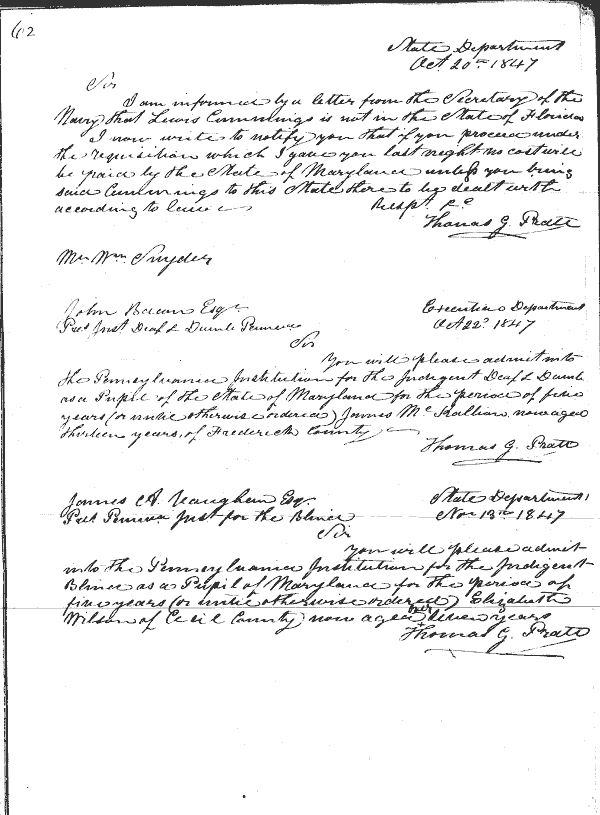 62
State Department
Oct. 20th 1847
Sir
I am informed by a letter from the Secretary of the
Navy that Lewis Cummings is not in the State of Florida
I now write to notify you that if you proceed under
the requisition which I gave you last night no cost will
be paid by the State of Maryland unless you bring
said Cummings to this State there to be dealt with
according to
Respt. &c
Thomas G. Pratt
Mr. Wm. Snyder
John Bacon Esqr
Executive Department
Prest Inst Deaf & Dumb Pennva
Oct 22d 1847
Sir
You will please admit into
the Pennsylvania Institution for the Indigent Deaf & Dumb
as a Pupil of the State of Maryland for the period of five
years (or until otherwise ordered) James Mc now aged
thirteen years, of Frederick County
Thomas G. Pratt
James A. Vaughan Esq.
State Department
Prest Pennva Inst for the Blind
Nov 13th 1847
Sir
You will please admit
into the Pennsylvania Institution for the Indigent
Blind as a Pupil of Maryland for the period of
five years (or until otherwise ordered) Elizabeth
Wilson of Cecil County now aged over eleven years
Thomas G. Pratt